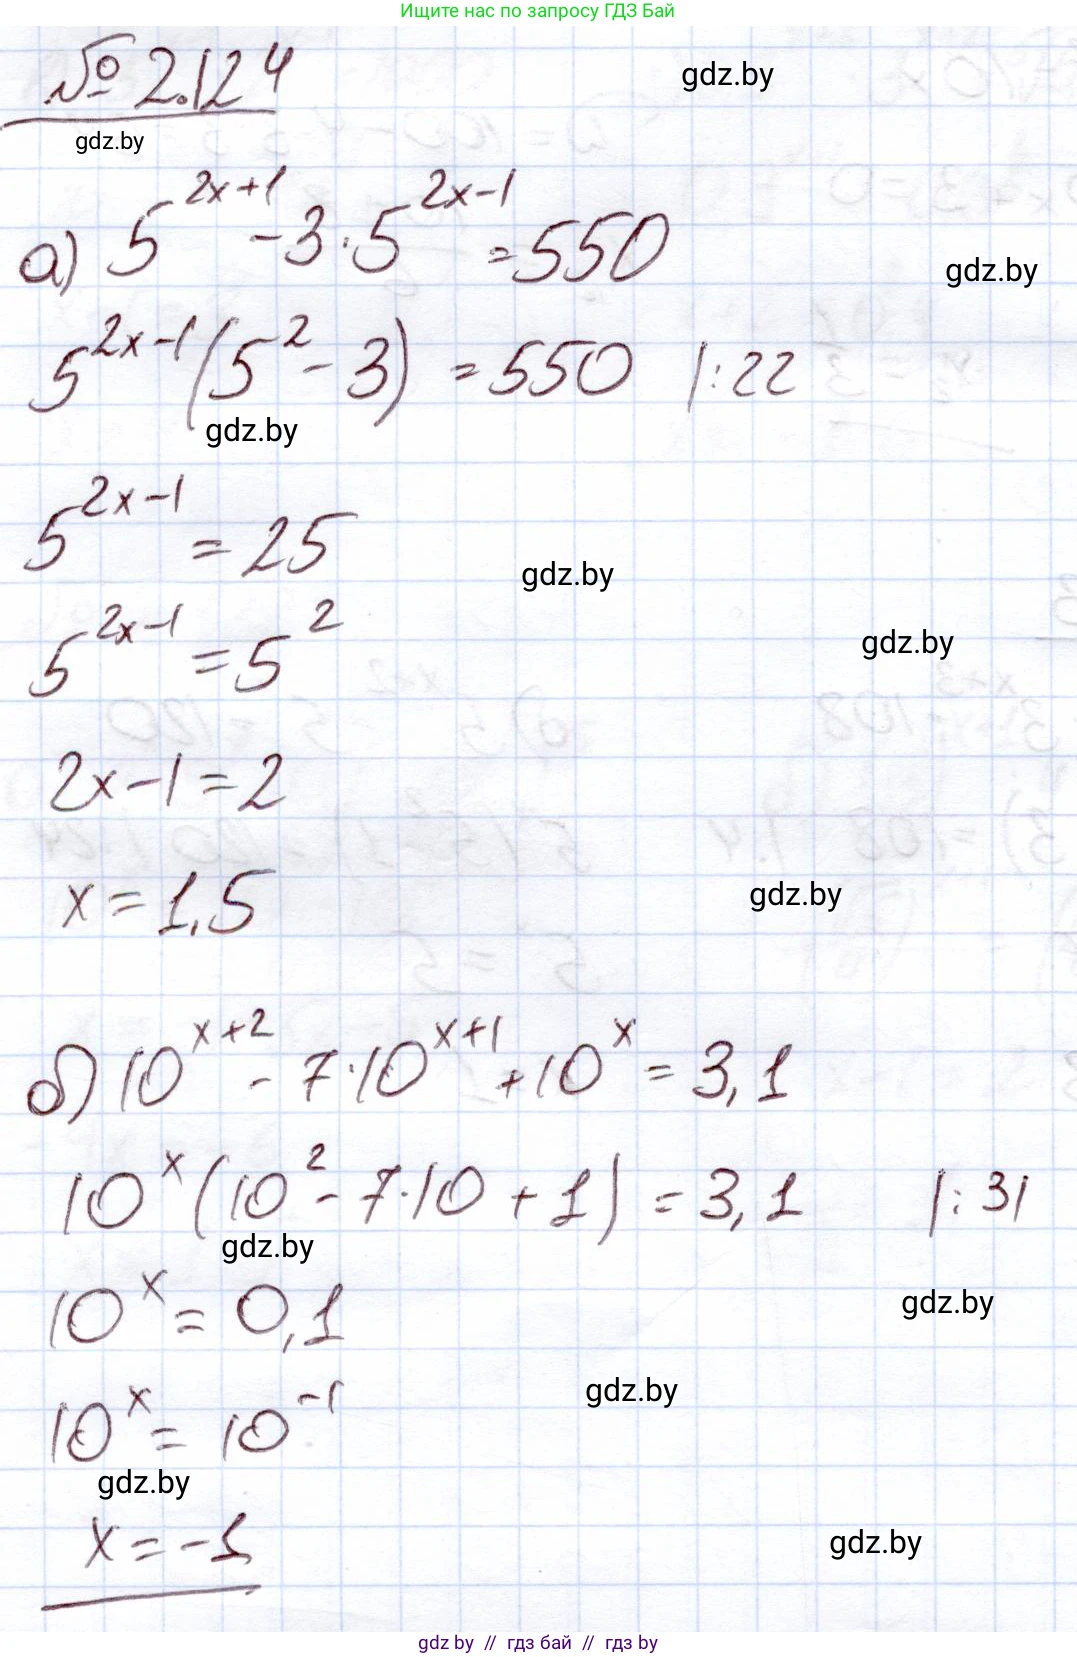 Ищите нас по запросу ГДЗ Бай
№ 2.124
gdz.by
gdz.by
а) 5^{2x+1} - 3·5^{2x-1} = 550
gdz.by
5^{2x-1}(5^2 - 3) = 550 |:22
gdz.by
5^{2x-1} = 25
gdz.by
5^{2x-1} = 5^2
gdz.by
2x-1=2
x = 1,5
gdz.by
б) 10^{x+2} - 7·10^{x+1} + 10^x = 3,1
10^x(10^2 - 7·10 + 1) = 3,1 |:31
gdz.by
10^x = 0,1
gdz.by
10^x = 10^{-1}
gdz.by
gdz.by
x = -1
gdz.by
gdz by // гдз бай // гдз by